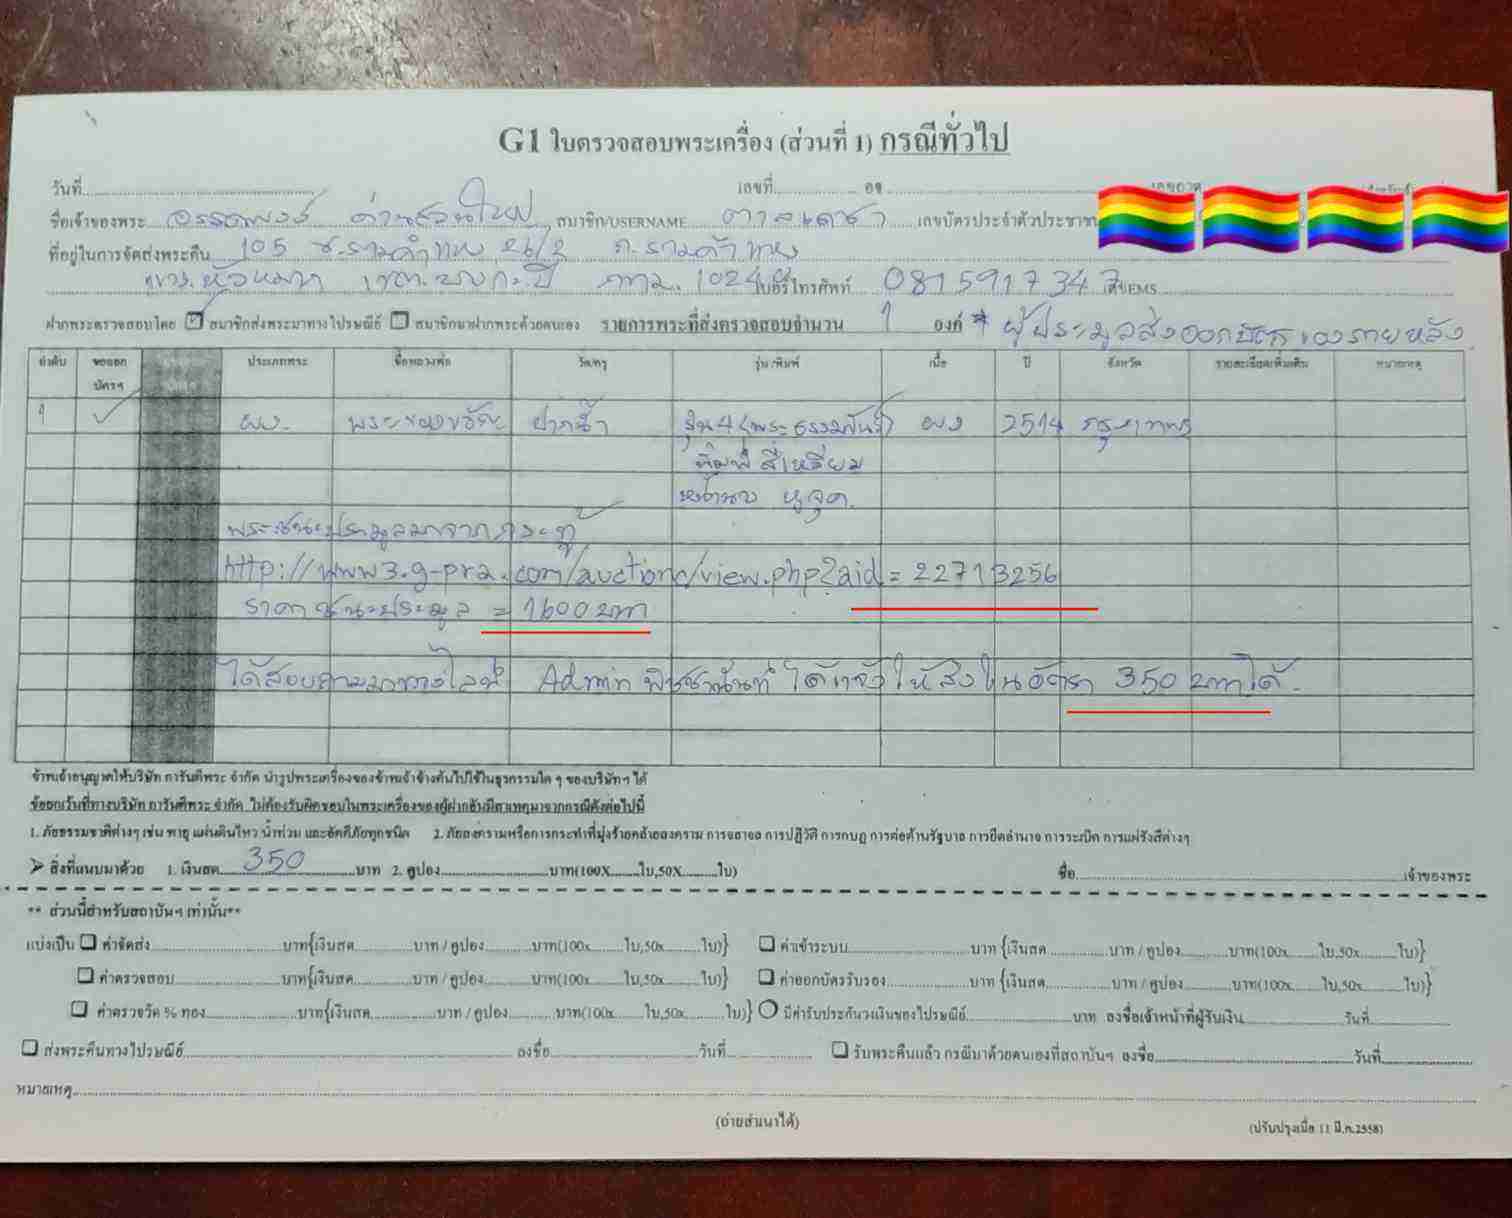 G1 ใบตรวจสอบพระเครื่อง (ส่วนที่ 1) กรณีทั่วไป
วันที่ เลขที่ อข
ชื่อเจ้าของพระ อรรถพงษ์ ด่านสวนใหญ่ สมาชิก/USERNAME เลขบัตรประจำตัวประชาชน
ที่อยู่ในการจัดส่งพระคืน 105 ซ.รามคำแหง 26/2 ถ.รามคำแหง
แขวง.หัวหมาก เขต.บางกะปิ กทม. 10240 เบอร์โทรศัพท์ 0815917347 EMS
ฝากพระตรวจสอบโดย สมาชิกส่งพระมาทางไปรษณีย์ สมาชิกมาฝากพระด้วยตนเอง รายการพระที่ส่งตรวจสอบจำนวน 1 องค์ * ผู้ประมูลส่งออกบัตรเองภายหลัง
ลำดับ ขอออกบัตรฯ ประเภทพระ ชื่อหลวงพ่อ วัด/กรุ รุ่น/พิมพ์ เนื้อ ปี จังหวัด รายละเอียดเพิ่มเติม หมายเหตุ
1 ผง พระของขวัญ ปากน้ำ รุ่น 4 (พระธรรมขันธ์) ผง 2514 กรุงเทพฯ
พิมพ์สี่เหลี่ยม
หูจุด
พระชนะประมูลมาจากกระทู้
http://www3.g-pra.com/auctionc/view.php?aid=22713256
ราคาชนะประมูล = 1600 บาท
ได้สอบถามมาทางไลน์ Admin พิชชานันท์ ได้แจ้งให้ส่งในอัตรา 350 บาทได้.
ข้าพเจ้าอนุญาตให้บริษัท การันตีพระ จำกัด นำรูปพระเครื่องของข้าพเจ้าข้างต้นไปใช้ในธุรกรรมใด ๆ ของบริษัทฯ ได้
ข้อยกเว้นที่ทางบริษัท การันตีพระ จำกัด ไม่ต้องรับผิดชอบในพระเครื่องของผู้ฝากอันมีสาเหตุมาจากกรณีดังต่อไปนี้
1. ภัยธรรมชาติต่างๆ เช่น พายุ แผ่นดินไหว น้ำท่วม และอัคคีภัยทุกชนิด 2. ภัยสงครามหรือการกระทำที่มุ่งร้ายคล้ายสงคราม การจลาจล การปฏิวัติ การกบฏ การต่อต้านรัฐบาล การยึดอำนาจ การระเบิด การแผ่รังสีต่างๆ
➢ สิ่งที่แนบมาด้วย 1. เงินสด 350 บาท 2. คูปอง บาท(100X ใบ,50X ใบ) ชื่อ เจ้าของพระ
** ส่วนนี้สำหรับสถาบันฯ เท่านั้น**
แบ่งเป็น ค่าจัดส่ง บาท{เงินสด บาท / คูปอง บาท(100x ใบ,50x ใบ)} ค่าเข้าระบบ บาท {เงินสด บาท / คูปอง บาท(100x ใบ,50x ใบ)}
ค่าตรวจสอบ บาท{เงินสด บาท / คูปอง บาท(100x ใบ,50x ใบ)} ค่าออกบัตรรับรอง บาท {เงินสด บาท / คูปอง บาท(100x ใบ,50x ใบ)}
ค่าตรวจวัด % ทอง บาท{เงินสด บาท / คูปอง บาท(100x ใบ,50x ใบ)} มีค่ารับประกันวงเงินของไปรษณีย์ บาท ลงชื่อเจ้าหน้าที่ผู้รับเงิน วันที่
ส่งพระคืนทางไปรษณีย์ ลงชื่อ วันที่ รับพระคืนแล้ว กรณีมาด้วยตนเองที่สถาบันฯ ลงชื่อ วันที่
หมายเหตุ
(ถ่ายสำเนาได้) (ปรับปรุงเมื่อ 11 มี.ค.2558)